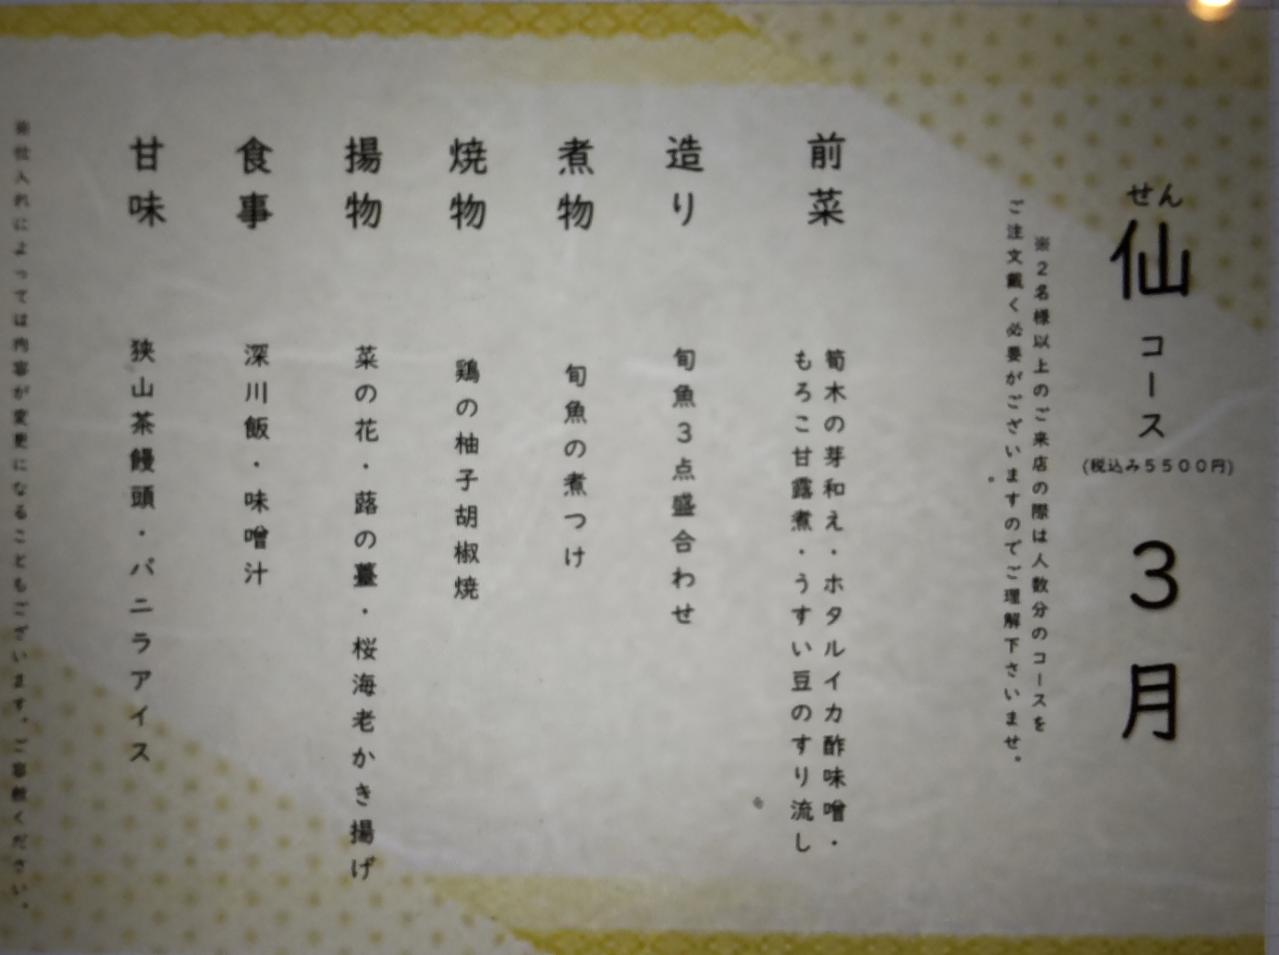 せん
仙コース
(税込み5500円)
3月
※2名様以上のご来店の際は人数分のコースを
ご注文戴く必要がございますのでご理解下さいませ。
前菜
筍木の芽和え・ホタルイカ酢味噌・
もろこ甘露煮・うすい豆のすり流し
造り
旬魚3点盛合わせ
煮物
旬魚の煮つけ
焼物
鶏の柚子胡椒焼
揚物
菜の花・蕗の薹・桜海老かき揚げ
食事
深川飯・味噌汁
甘味
狭山茶饅頭・バニラアイス
※仕入れによっては内容が変更になることもございます。ご容赦ください。